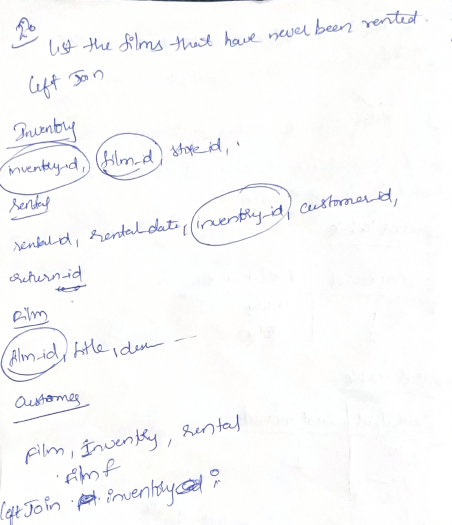 20
list the films that have never been rented.
left Join
Inventory
inventory_id, film_id, store_id, .
rental
rental_id, rental_date, inventory_id, customer_id,
return_id
Film
film_id, title, des ---
Customer
film, Inventory, rental
film f
left Join inventory i